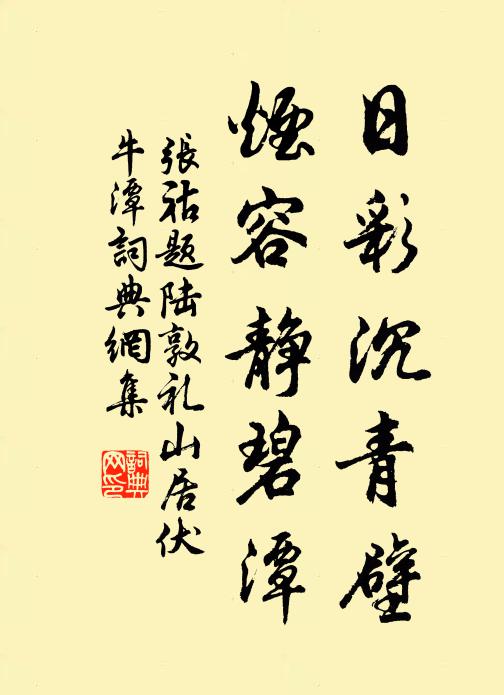 日彩沉青壁
煙容静碧潭
張祜題陸敦礼山居伏
牛潭詞典網集
詞典
网印